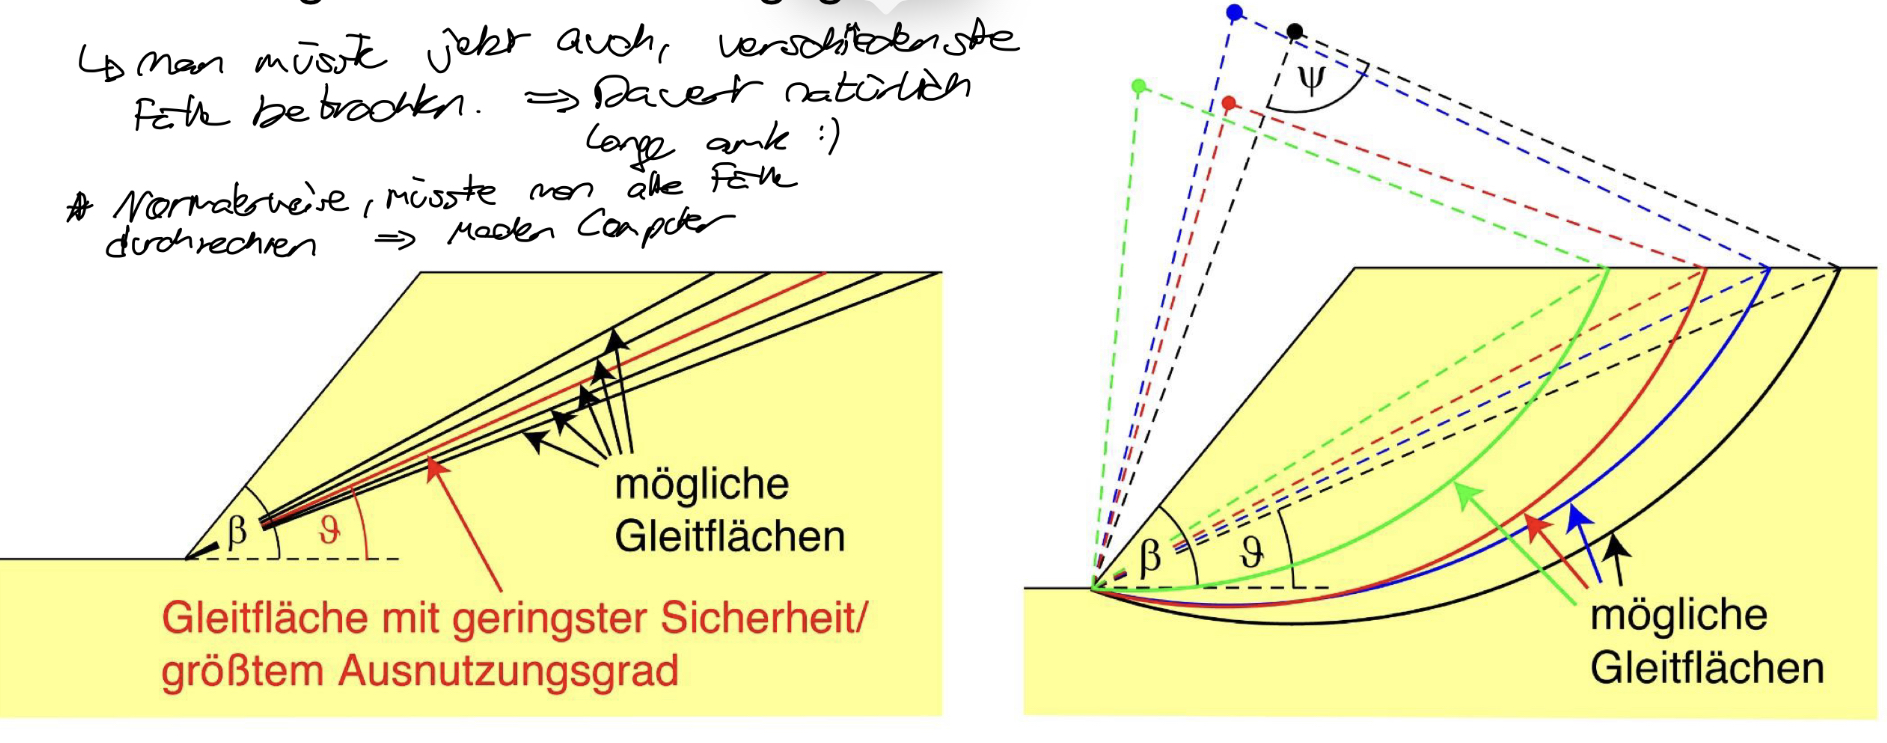 ↳ man müsste jetzt auch, verschiedenste
Fälle betrachten. ⇒ Dauert natürlich
lange amk :)
* Normalerweise, müsste man alle Fälle
durchrechnen ⇒ Computer
ψ
β
ϑ
mögliche
Gleitflächen
Gleitfläche mit geringster Sicherheit/
größtem Ausnutzungsgrad
β
ϑ
mögliche
Gleitflächen